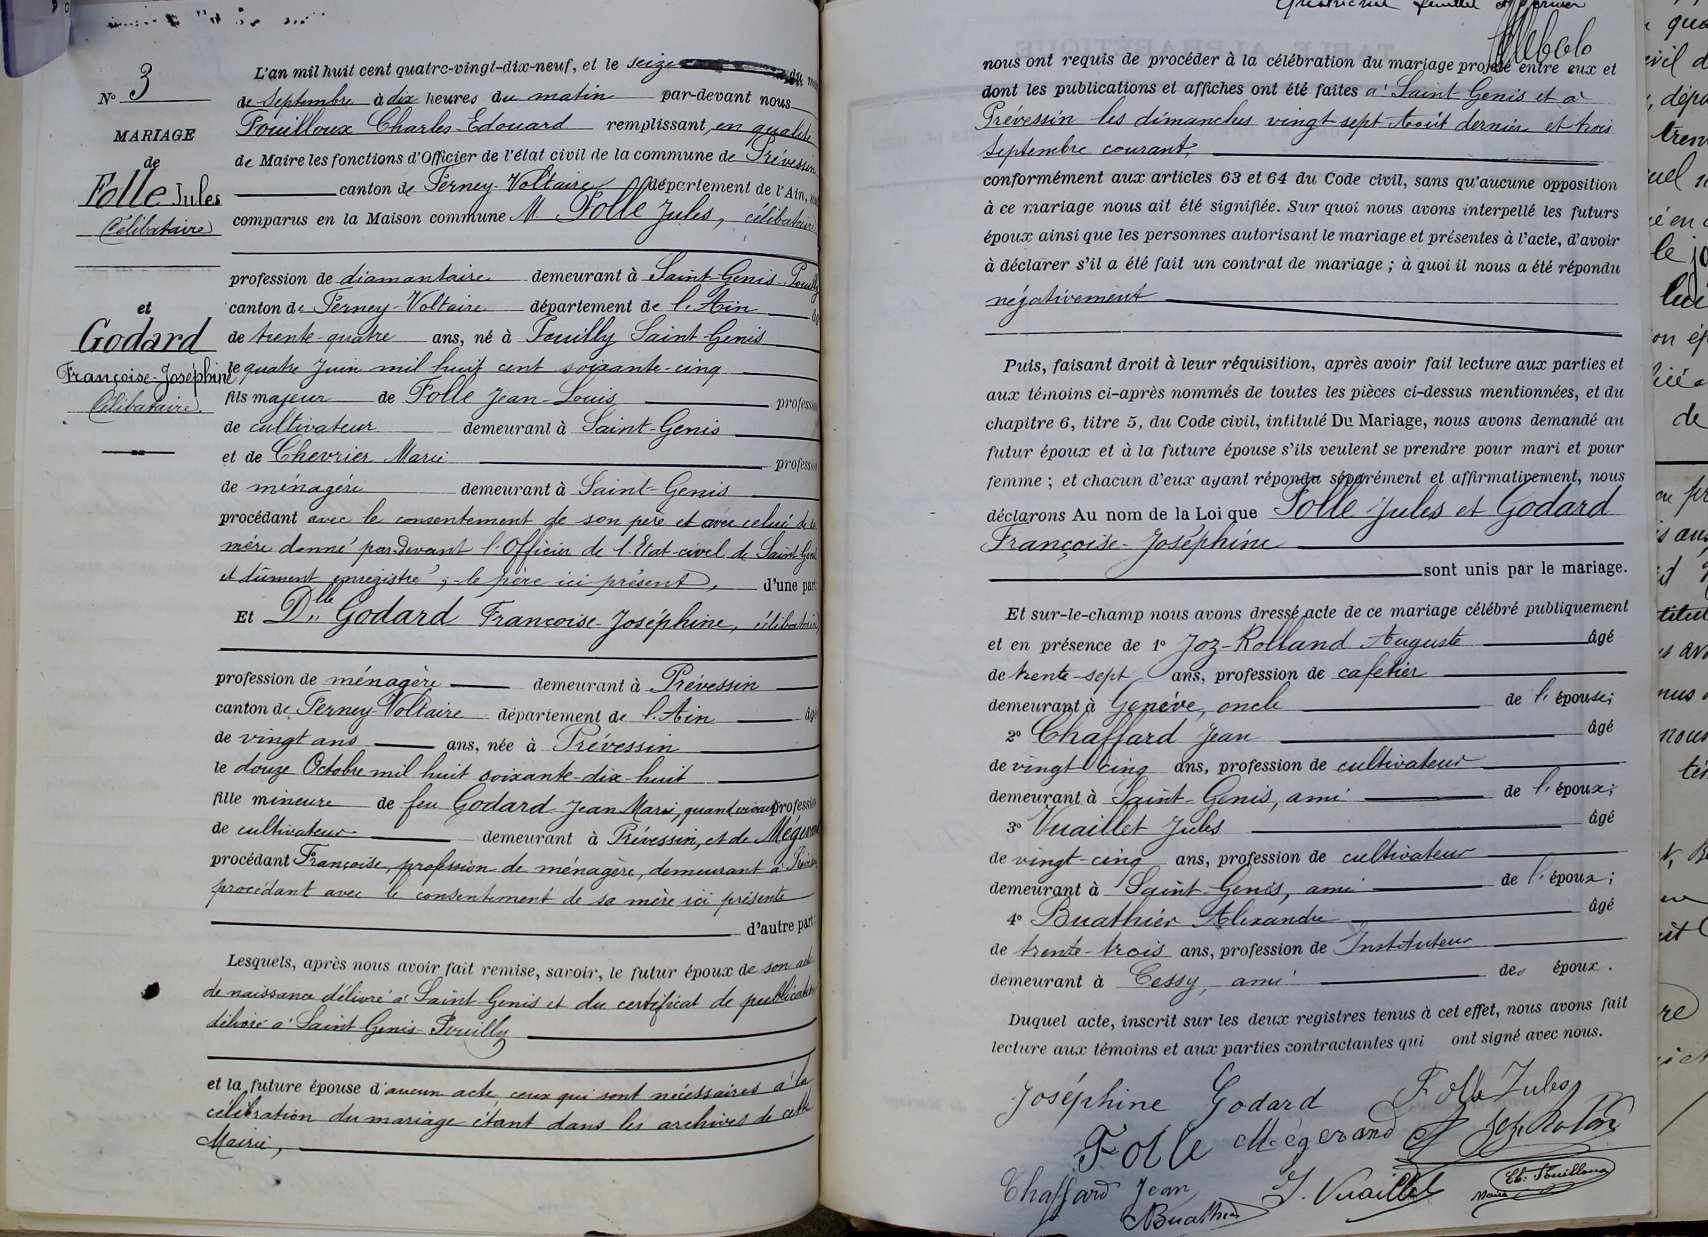 N° 3
MARIAGE
de
Folle Jules
Célibataire
et
Godard
Françoise-Joséphine
Célibataire
L'an mil huit cent quatre-vingt-dix-neuf, et le seize du mois
de Septembre à dix heures du matin par-devant nous
Fouilloux Charles-Edouard remplissant en qualité
de Maire les fonctions d'Officier de l'état civil de la commune de Prévessin
canton de Ferney-Voltaire département de l'Ain,
comparus en la Maison commune M Folle Jules, célibataire
profession de diamantaire demeurant à Saint-Genis-Pouilly
canton de Ferney-Voltaire département de l'Ain âgé
de trente-quatre ans, né à Pouilly Saint-Genis
le quatre Juin mil huit cent soixante-cinq
fils majeur de Folle Jean-Louis profession
de cultivateur demeurant à Saint-Genis
et de Chevrier Marie profession
de ménagère demeurant à Saint-Genis
procédant avec le consentement de son père et avec celui de sa
mère donné par-devant l'Officier de l'Etat-civil de Saint-Genis
et dûment enregistré, le père ici présent, d'une part
Et Dlle Godard Françoise-Joséphine, célibataire,
profession de ménagère demeurant à Prévessin
canton de Ferney-Voltaire département de l'Ain âgée
de vingt ans ans, née à Prévessin
le douze Octobre mil huit soixante-dix-huit
fille mineure de feu Godard Jean Marie, quand vivait profession
de cultivateur demeurant à Prévessin, et de Mégerand
procédant Françoise, profession de ménagère, demeurant à Prévessin
procédant avec le consentement de sa mère ici présente
d'autre part;
Lesquels, après nous avoir fait remise, savoir, le futur époux de son acte
de naissance délivré à Saint-Genis et du certificat de publication
délivré à Saint-Genis-Pouilly
et la future épouse d'aucun acte, ceux qui sont nécessaires à la
célébration du mariage étant dans les archives de cette
Mairie,
feuillet
nous ont requis de procéder à la célébration du mariage projeté entre eux et
dont les publications et affiches ont été faites à Saint Genis et à
Prévessin les dimanches vingt sept Août dernier et trois
Septembre courant,
conformément aux articles 63 et 64 du Code civil, sans qu'aucune opposition
à ce mariage nous ait été signifiée. Sur quoi nous avons interpellé les futurs
époux ainsi que les personnes autorisant le mariage et présentes à l'acte, d'avoir
à déclarer s'il a été fait un contrat de mariage ; à quoi il nous a été répondu
négativement
Puis, faisant droit à leur réquisition, après avoir fait lecture aux parties et
aux témoins ci-après nommés de toutes les pièces ci-dessus mentionnées, et du
chapitre 6, titre 5, du Code civil, intitulé Du Mariage, nous avons demandé au
futur époux et à la future épouse s'ils veulent se prendre pour mari et pour
femme ; et chacun d'eux ayant répondu séparément et affirmativement, nous
déclarons Au nom de la Loi que Folle Jules et Godard
Françoise-Joséphine
sont unis par le mariage.
Et sur-le-champ nous avons dressé acte de ce mariage célébré publiquement
et en présence de 1° Joz-Rolland Auguste âgé
de trente-sept ans, profession de cafetier
demeurant à Genève, oncle de l'épouse;
2° Chaffard Jean âgé
de vingt cinq ans, profession de cultivateur
demeurant à Saint-Genis, ami de l'époux;
3° Vuaillet Jules âgé
de vingt-cinq ans, profession de cultivateur
demeurant à Saint-Genis, ami de l'époux;
4° Buathier Alexandre âgé
de trente-trois ans, profession de Instituteur
demeurant à Cessy, ami des époux.
Duquel acte, inscrit sur les deux registres tenus à cet effet, nous avons fait
lecture aux témoins et aux parties contractantes qui ont signé avec nous.
Joséphine Godard Folle Jules
Folle Mégerand Joz-Roland
Chaffard Jean J. Vuaillet Maire Ch. Fouilloux
Buathier